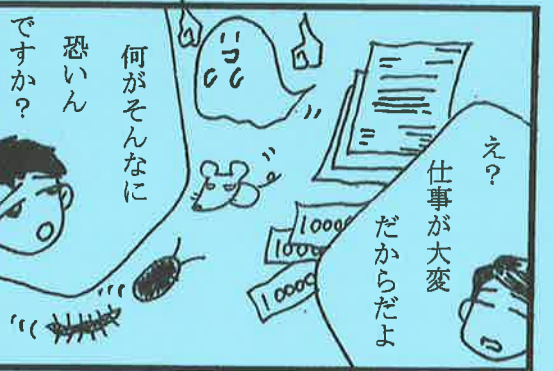 え?
仕事が大変
だからだよ
10000
10000
10000
何がそんなに
恐いん
ですか?